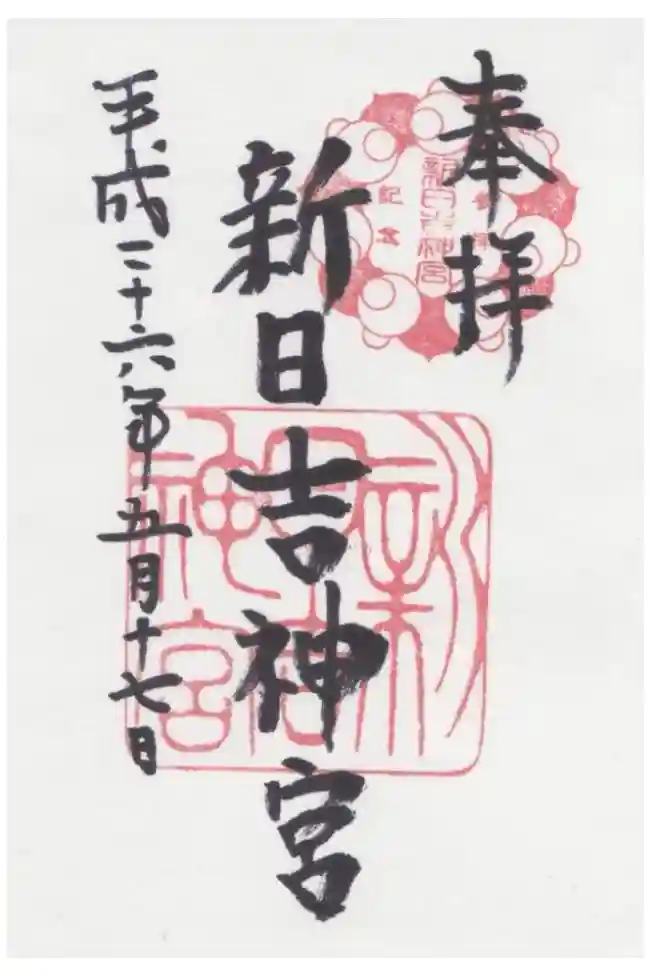 奉拝
新日吉神宮
参拝
記念
新日吉神宮
新日吉神宮
平成二十六年五月十七日